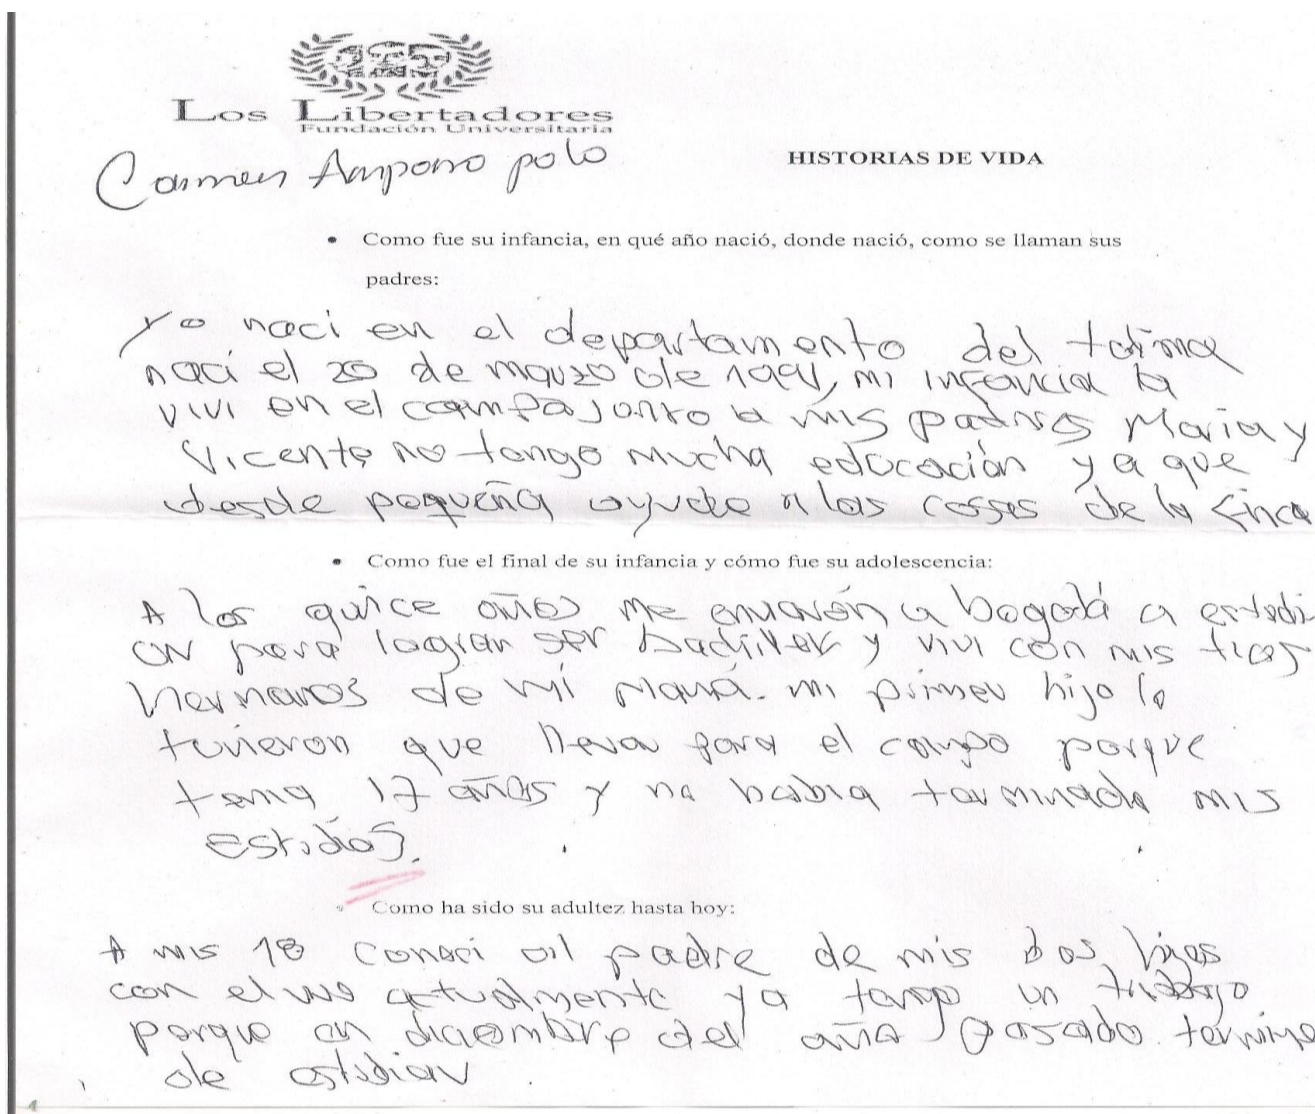 Los Libertadores
Fundación Universitaria
Carmen Amparo polo
HISTORIAS DE VIDA
• Como fue su infancia, en qué año nació, donde nació, como se llaman sus
padres:
Yo naci en el departamento del tolima
naci el 20 de marzo de 1991, mi infancia la
vivi en el campo junto a mis padres Maria y
Vicente no tengo mucha educación ya que
desde pequeña ayude a las cosas de la finca
• Como fue el final de su infancia y cómo fue su adolescencia:
A los quice años me enviarón a bogotá a estudi
ar para lograr ser bachiller y vivi con mis tios
Hermanos de mi mamá. mi primer hijo lo
tuvieron que llevar para el campo porque
tenia 17 años y no habia terminado mis
Estudios.
Como ha sido su adultez hasta hoy:
A mis 18 conoci al padre de mis dos hijos
con el vivo actualmente ya tengo un trabajo
porque en diciembre del año pasado termine
de estudiar